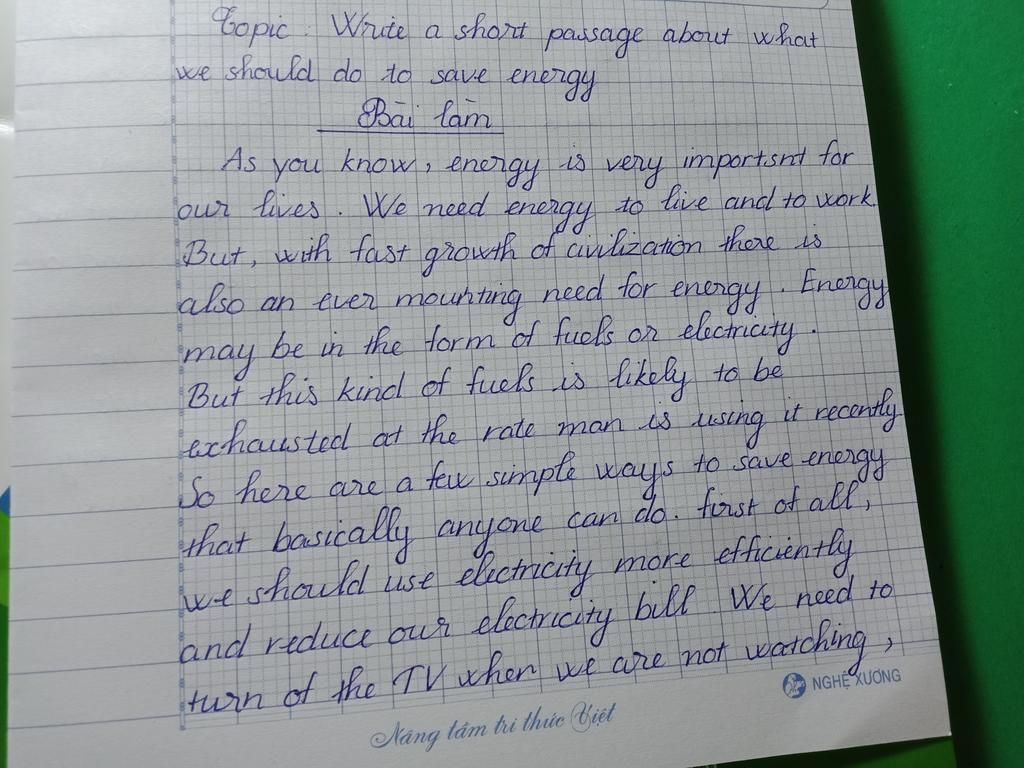 Topic: Write a short passage about what
we should do to save energy
Bài làm
As you know, energy is very importsnt for
our lives. We need energy to live and to work.
But, with fast growth of civilization there is
also an ever mounting need for energy. Energy
may be in the form of fuels or electricity.
But this kind of fuels is likely to be
exhausted at the rate man is using it recently
So here are a few simple ways to save energy
that basically anyone can do. first of all,
we should use electricity more efficiently
and reduce our electricity bill. We need to
turn of the TV when we are not watching,
NGHỆ XƯƠNG
Nâng tầm tri thức Việt